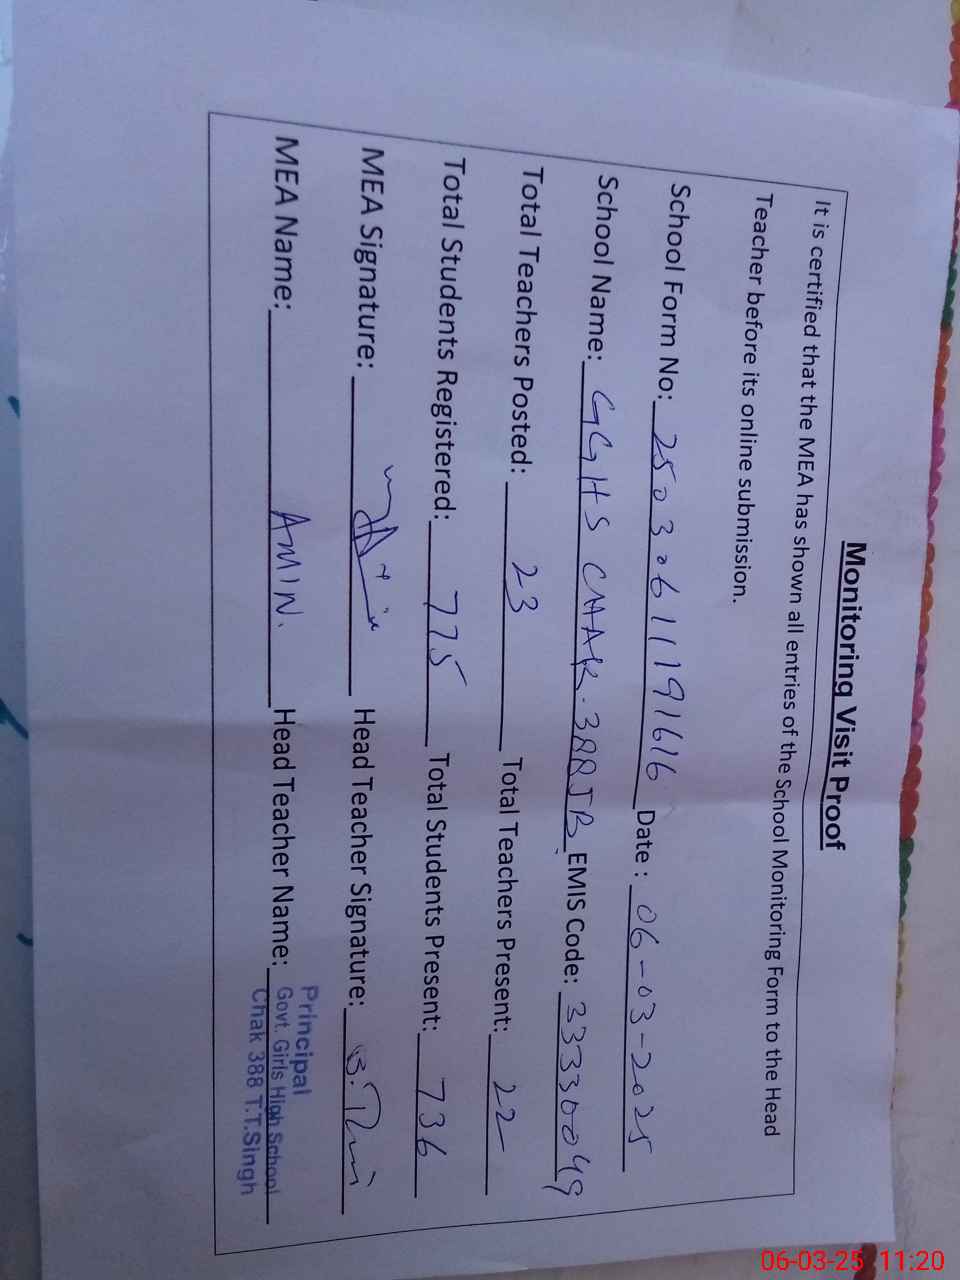 Monitoring Visit Proof
It is certified that the MEA has shown all entries of the School Monitoring Form to the Head
Teacher before its online submission.
School Form No: 25030611191616 Date : 06-03-2025
School Name: GGHS CHAK. 388JB EMIS Code: 33330049
Total Teachers Posted: 23 Total Teachers Present: 22
Total Students Registered: 775 Total Students Present: 736
MEA Signature: Head Teacher Signature:
MEA Name: AMIN. Head Teacher Name:
Principal
Govt. Girls High School
Chak 388 T.T.Singh
06-03-25 11:20